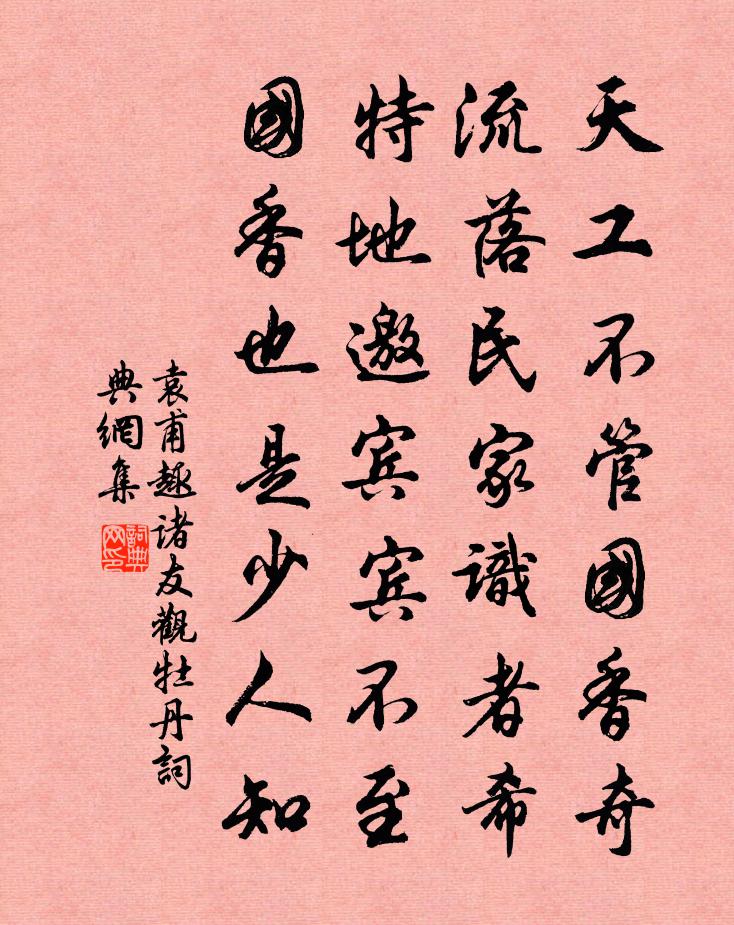 天工不管國香奇
流落民家識者希
特地邀宾宾不至
國香也是少人知
袁甫趣诸友觀牡丹詞
典網集
詞典
网印